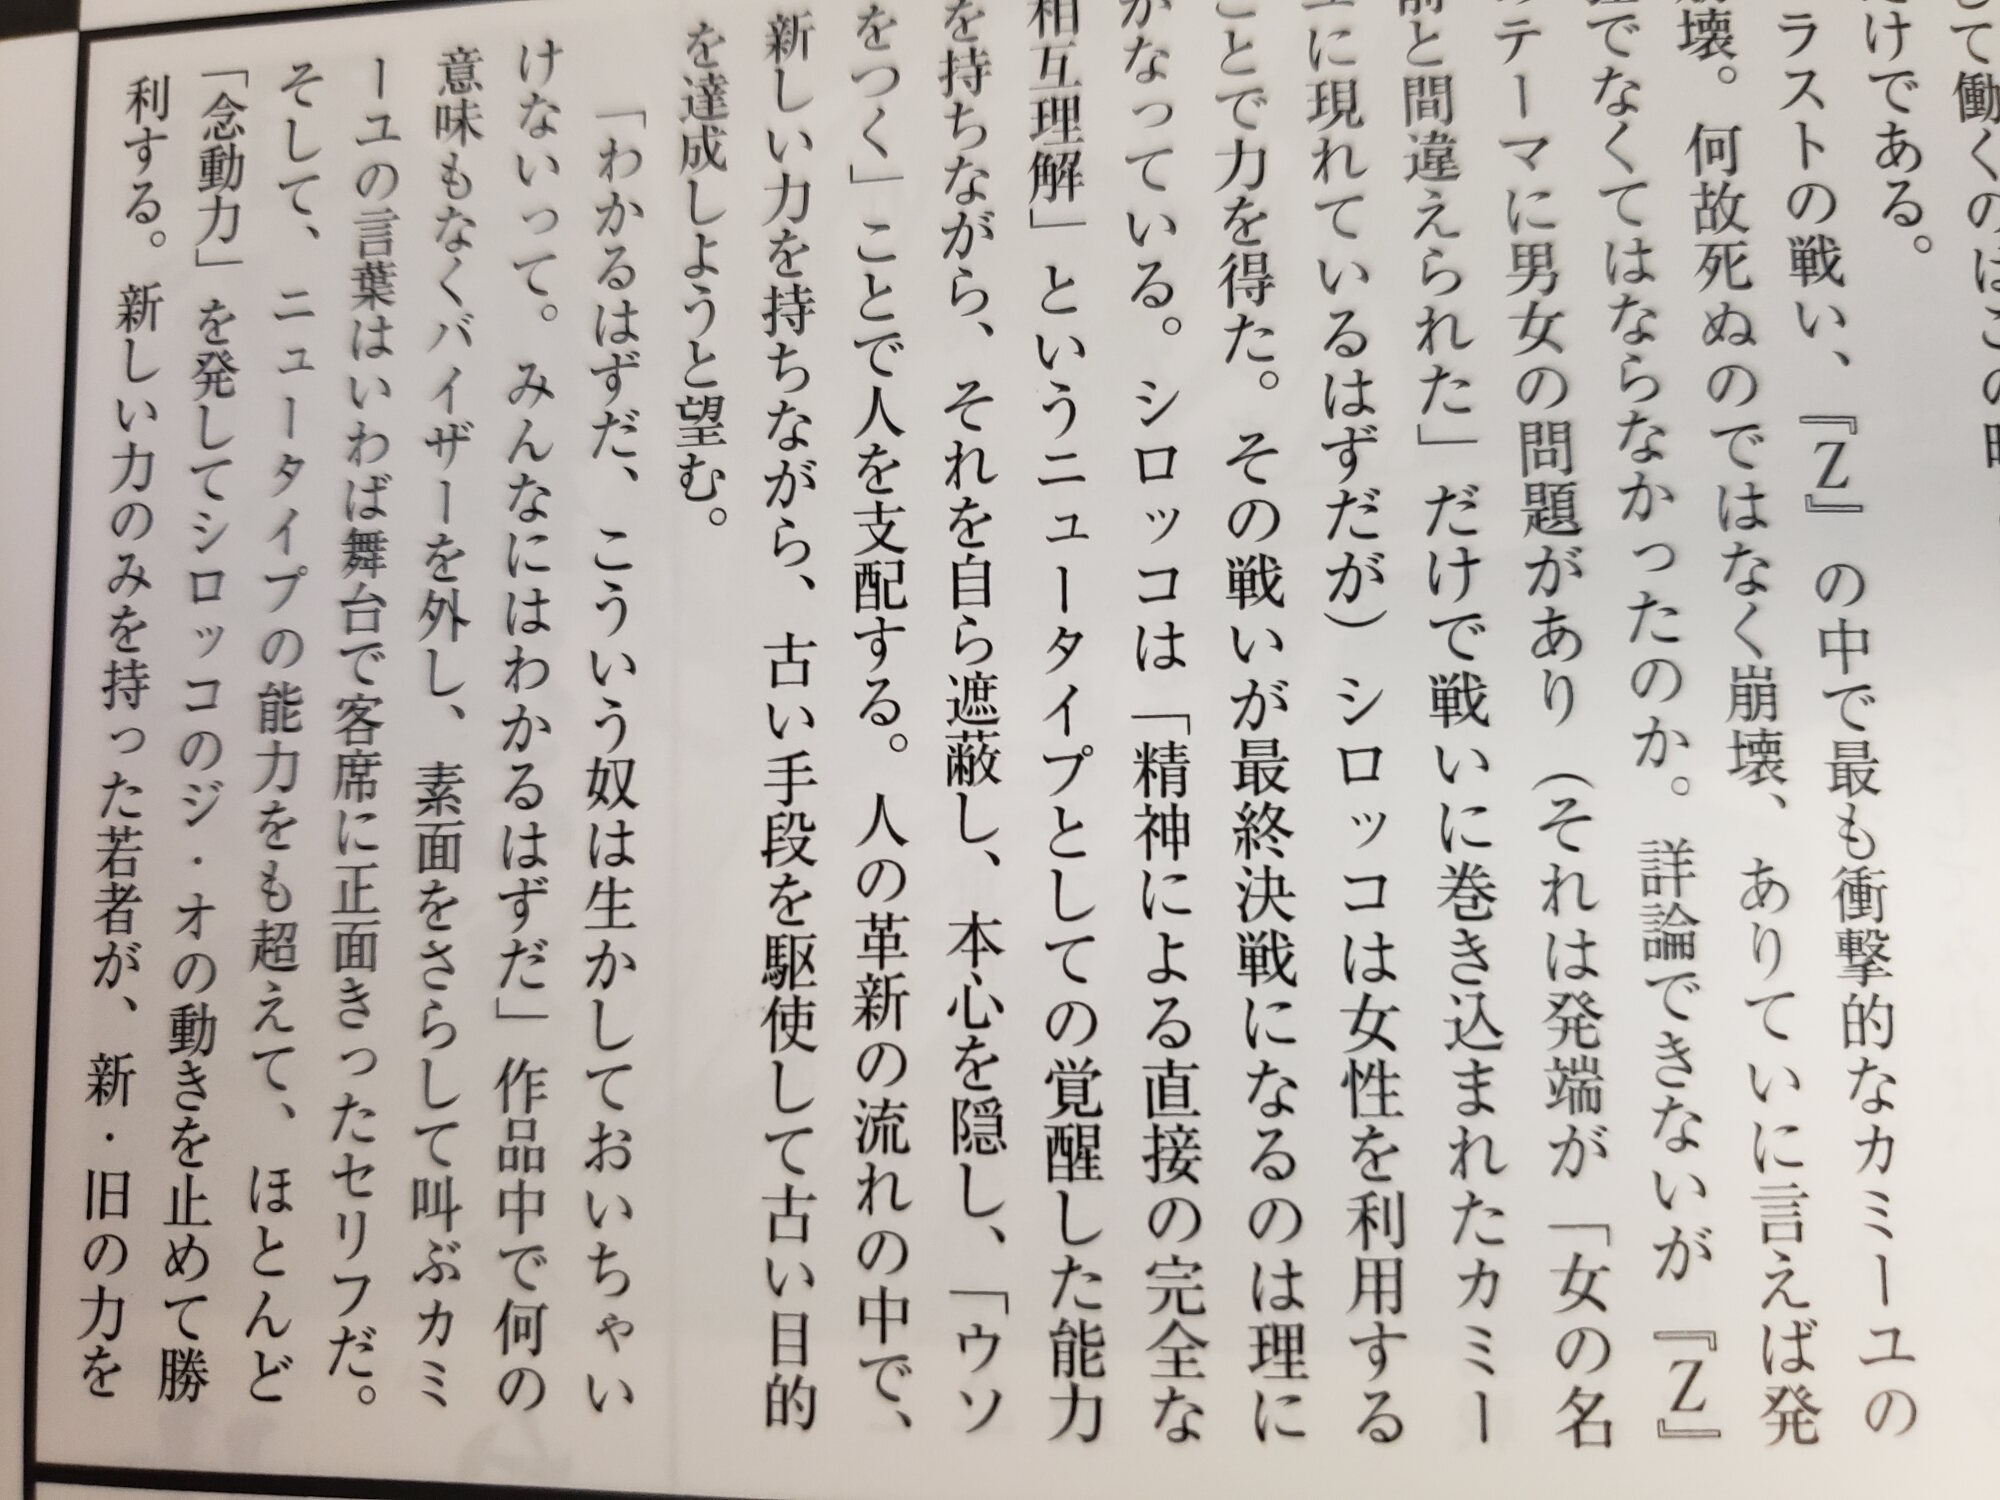 して働くのはこの
けである。
ラストの戦い、『Z』の中で最も衝撃的なカミーユの
崩壊。何故死ぬのではなく崩壊、ありていに言えば発
でなくてはならなかったのか。詳論できないが『Z』
のテーマに男女の問題があり（それは発端が「女の名
前と間違えられた」だけで戦いに巻き込まれたカミー
ユに現れているはずだが）シロッコは女性を利用する
ことで力を得た。その戦いが最終決戦になるのは理に
かなっている。シロッコは「精神による直接の完全な
相互理解」というニュータイプとしての覚醒した能力
を持ちながら、それを自ら遮蔽し、本心を隠し、「ウソ
をつく」ことで人を支配する。人の革新の流れの中で、
新しい力を持ちながら、古い手段を駆使して古い目的
を達成しようと望む。
「わかるはずだ、こういう奴は生かしておいちゃい
けないって。みんなにはわかるはずだ」作品中で何の
意味もなくバイザーを外し、素面をさらして叫ぶカミ
ーユの言葉はいわば舞台で客席に正面きったセリフだ。
そして、ニュータイプの能力をも超えて、ほとんど
「念動力」を発してシロッコのジ・オの動きを止めて勝
利する。新しい力のみを持った若者が、新・旧の力を